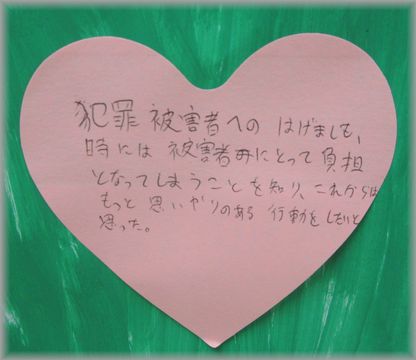 犯罪被害者への はげましも、
時には 被害者にとって負担
となってしまうことを知り、これからは
もっと 思いやりのある 行動をしたいと
思った。